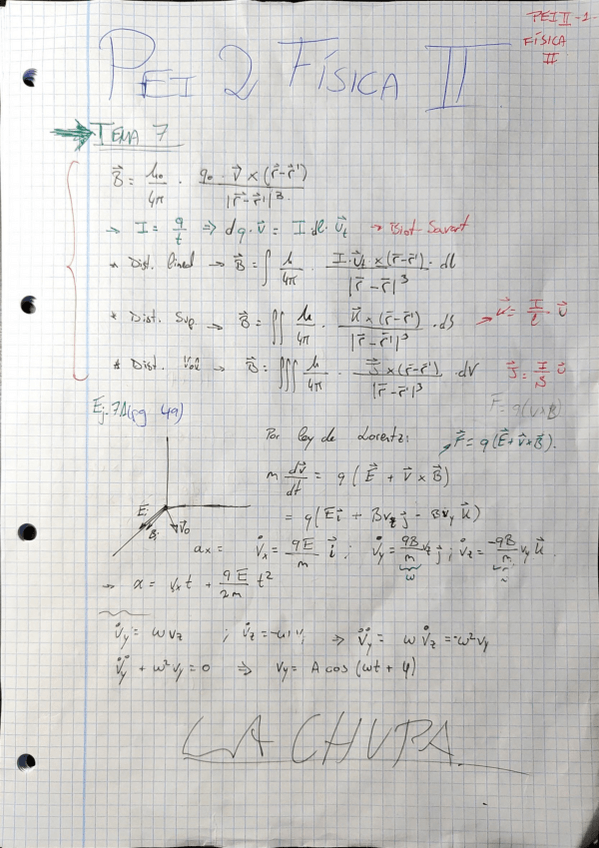 PEI II -1-
FÍSICA
II
PEI 2 FÍSICA II
TEMA 7
B⃗ = μ₀/4π · q₀ · v⃗ × (r⃗-r⃗')/|r⃗-r⃗'|³
→ I = q/t ⇒ dq·v⃗ = I·dl·u⃗t → Biot-Savart
* Dist. lineal → B⃗ = ∫ μ/4π · I·u⃗t × (r⃗-r⃗')/|r⃗-r⃗'|³ · dl
* Dist. Sup → B⃗ = ∬ μ/4π · K⃗ × (r⃗-r⃗')/|r⃗-r⃗'|³ · dS → K⃗ = I/l · u⃗
* Dist. Vol → B⃗ = ∭ μ/4π · J⃗ × (r⃗-r⃗')/|r⃗-r⃗'|³ · dV J⃗ = I/S u⃗
F = q(v×B)
Ej. 7.1 (pg. 49)
Por ley de Lorentz: F⃗ = q(E⃗+v⃗×B⃗).
m dv⃗/dt = q (E⃗ + v⃗ × B⃗)
= q(E i⃗ + B v_z j⃗ - B v_y k⃗)
E⃗
B⃗
v⃗₀
a_x = v̇_x = qE/m i⃗ ; v̇_y = qB/m v_z j⃗ ; v̇_z = -qB/m v_y k⃗
ω
→ x = v_x t + qE/2m t²
v̇_y = ω v_z ; v̇_z = -ω v_y ⇒ v̈_y = ω v̇_z = -ω² v_y
v̈_y + ω² v_y = 0 ⇒ v_y = A cos (ωt + φ)
LA CHUPA